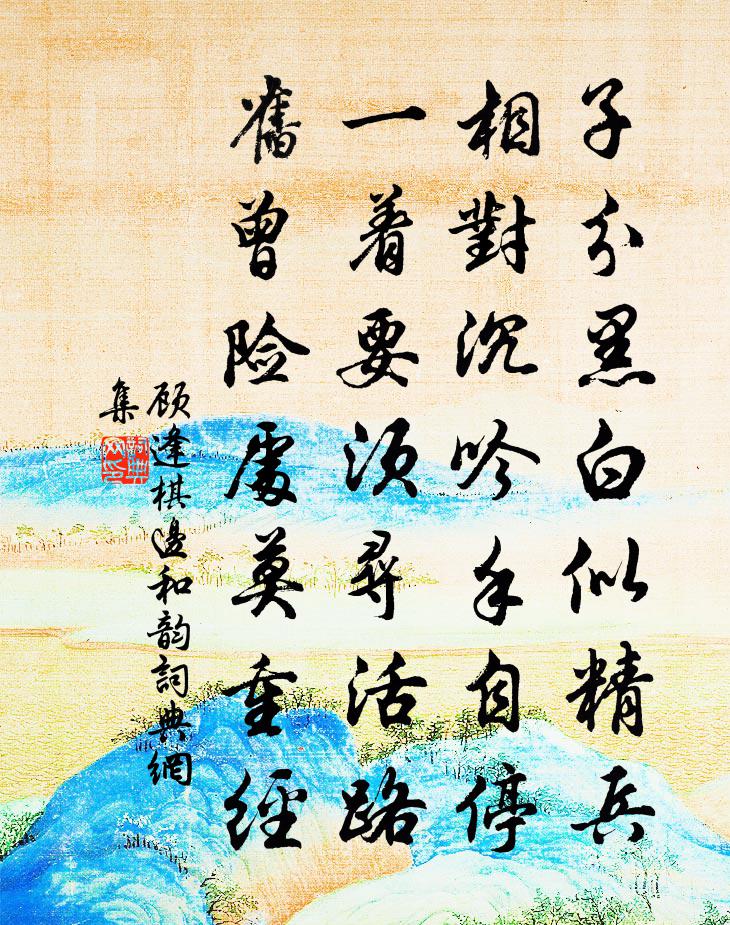 子分黑白似精兵
相對沉吟手自停
一着要須尋活路
舊曾险處莫重經
顾逢棋邊和韵詞典網
集